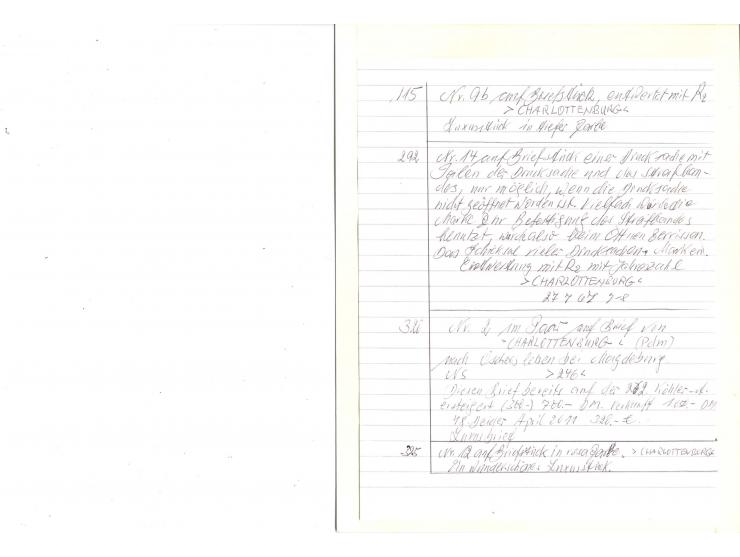 115 Nr. 9b auf Briefstück, entwertet mit R2
>CHARLOTTENBURG<
Luxusstück in tiefer Farbe
292 Nr. 14 auf Briefstück einer Drucksache mit
Teilen der Drucksache und des Streifban-
des, nur möglich, wenn die Drucksache
nicht geöffnet worden ist. Vielfach wurde die
Marke zur Befestigung des Streifbandes
benutzt, wurde also beim Öffnen zerrissen.
Das Schicksal vieler Drucksachen-Marken.
Entwertung mit R2 mit Jahreszahl
>CHARLOTTENBURG<
27 7 67 7-8
326 Nr. 2 im Paar auf Brief von
>CHARLOTTENBURG< (Pdm)
nach Oschersleben bei Magdeburg
NS >246<
Diesen Brief bereits auf der Köhler-
ersteigert (300-) 700.- DM. verkauft DM
April 2011 320.- €
Luxusbrief
325 Nr. 12 auf Briefstück in rosa Farbe. >CHARLOTTENBURG<
Ein wunderschönes Luxusstück.